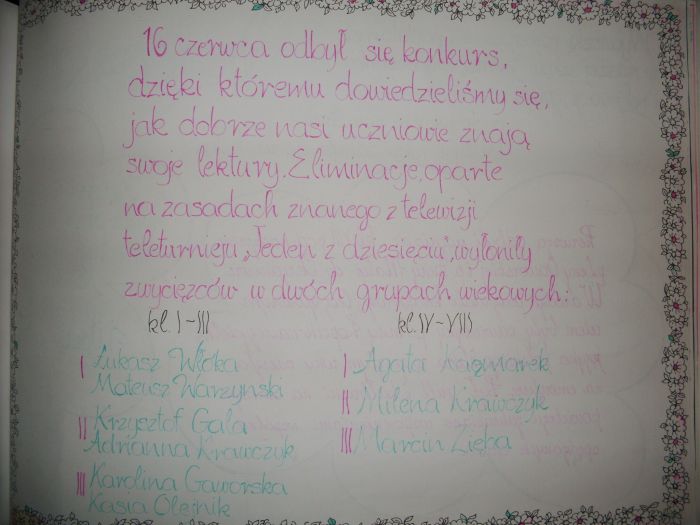 16 czerwca odbył się konkurs,
dzięki któremu dowiedzieliśmy się,
jak dobrze nasi uczniowie znają
swoje lektury. Eliminacje, oparte
na zasadach znanego z telewizji
teleturnieju „Jeden z dziesięciu", wyłoniły
zwycięzców w dwóch grupach wiekowych:
kl. I-III
kl. IV-VIII
I Łukasz Wloka
Mateusz Warzyński
II Krzysztof Gala
Adrianna Krawczyk
III Karolina Gaworska
Kasia Olejnik
I Agata Kaczmarek
II Milena Krawczyk
III Marcin Zięba